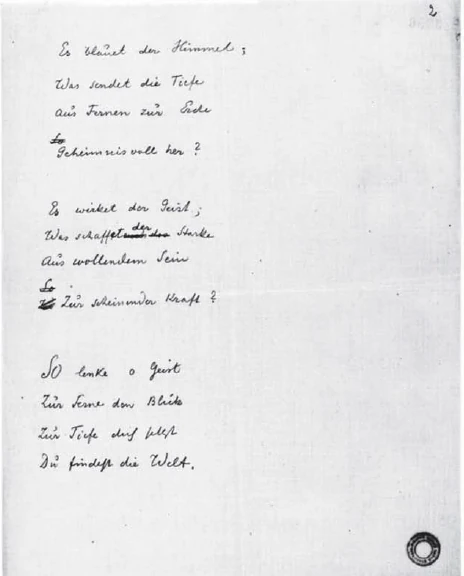 2
Es blauet der Himmel;
Was sendet die Tiefe
Aus Fernen zur Erde
So
Geheimnisvoll her?
Es wirket der Geist;
Was schafft der Starke
Aus wollendem Sein
So
Zur scheinender Kraft?
SO lenke o Geist
Zur Ferne den Blick
Zur Tiefe dich selbst
Du findest die Welt.